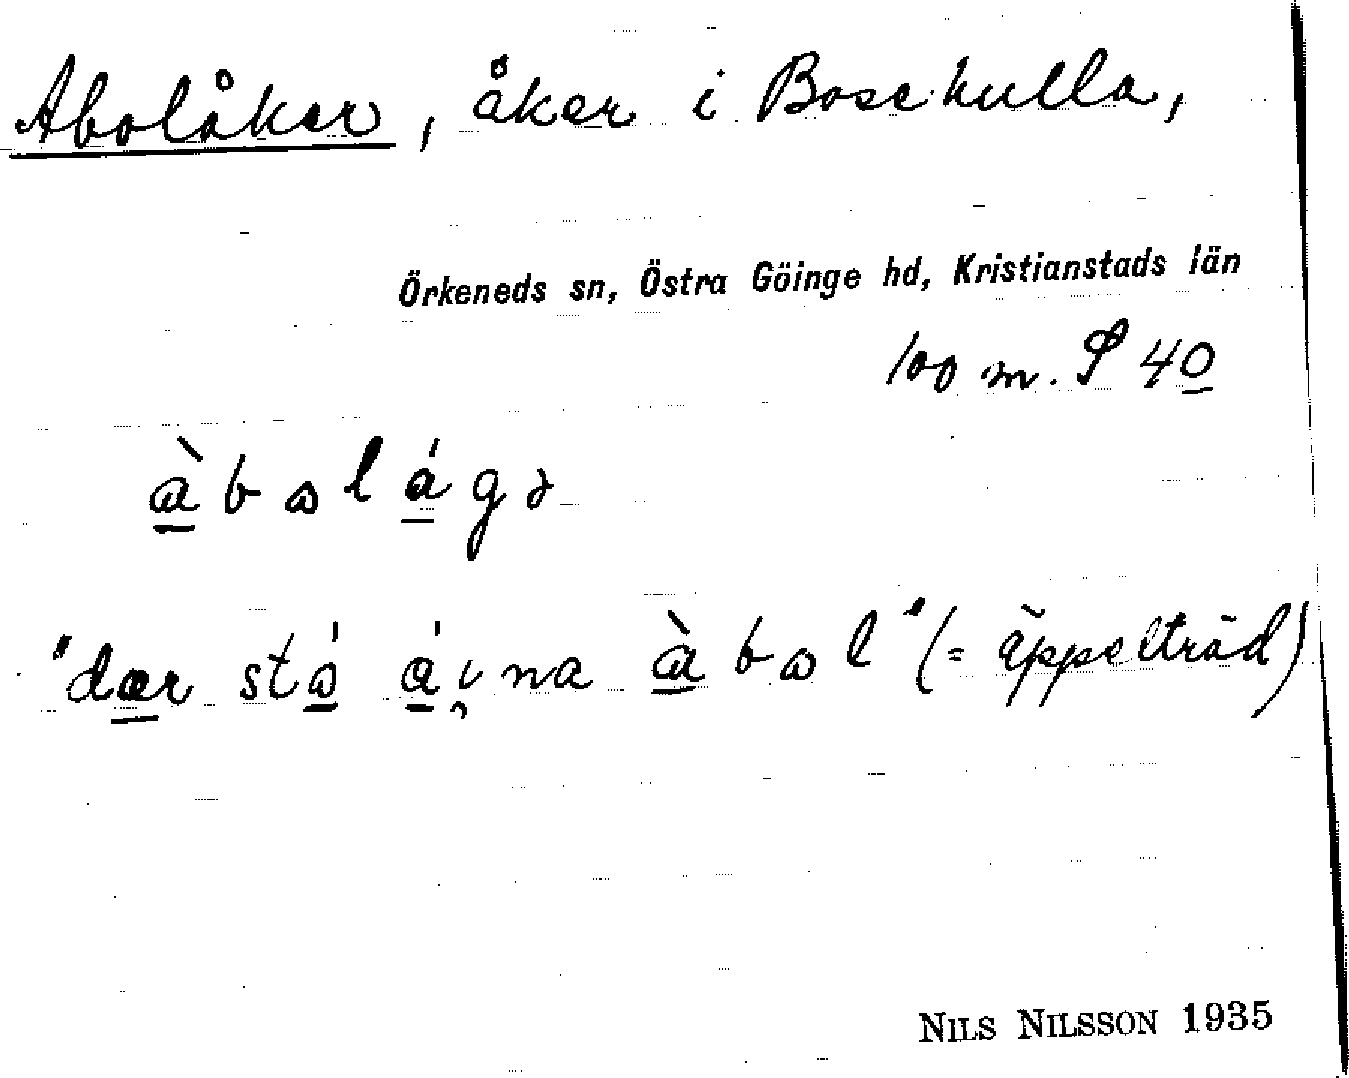 Abolåker, åker i Bosekulla,
Örkeneds sn, Östra Göinge hd, Kristianstads län
100 m. S 40
àbolágə
"dær stå áina àbol" (= äppelträd)
NILS NILSSON 1935